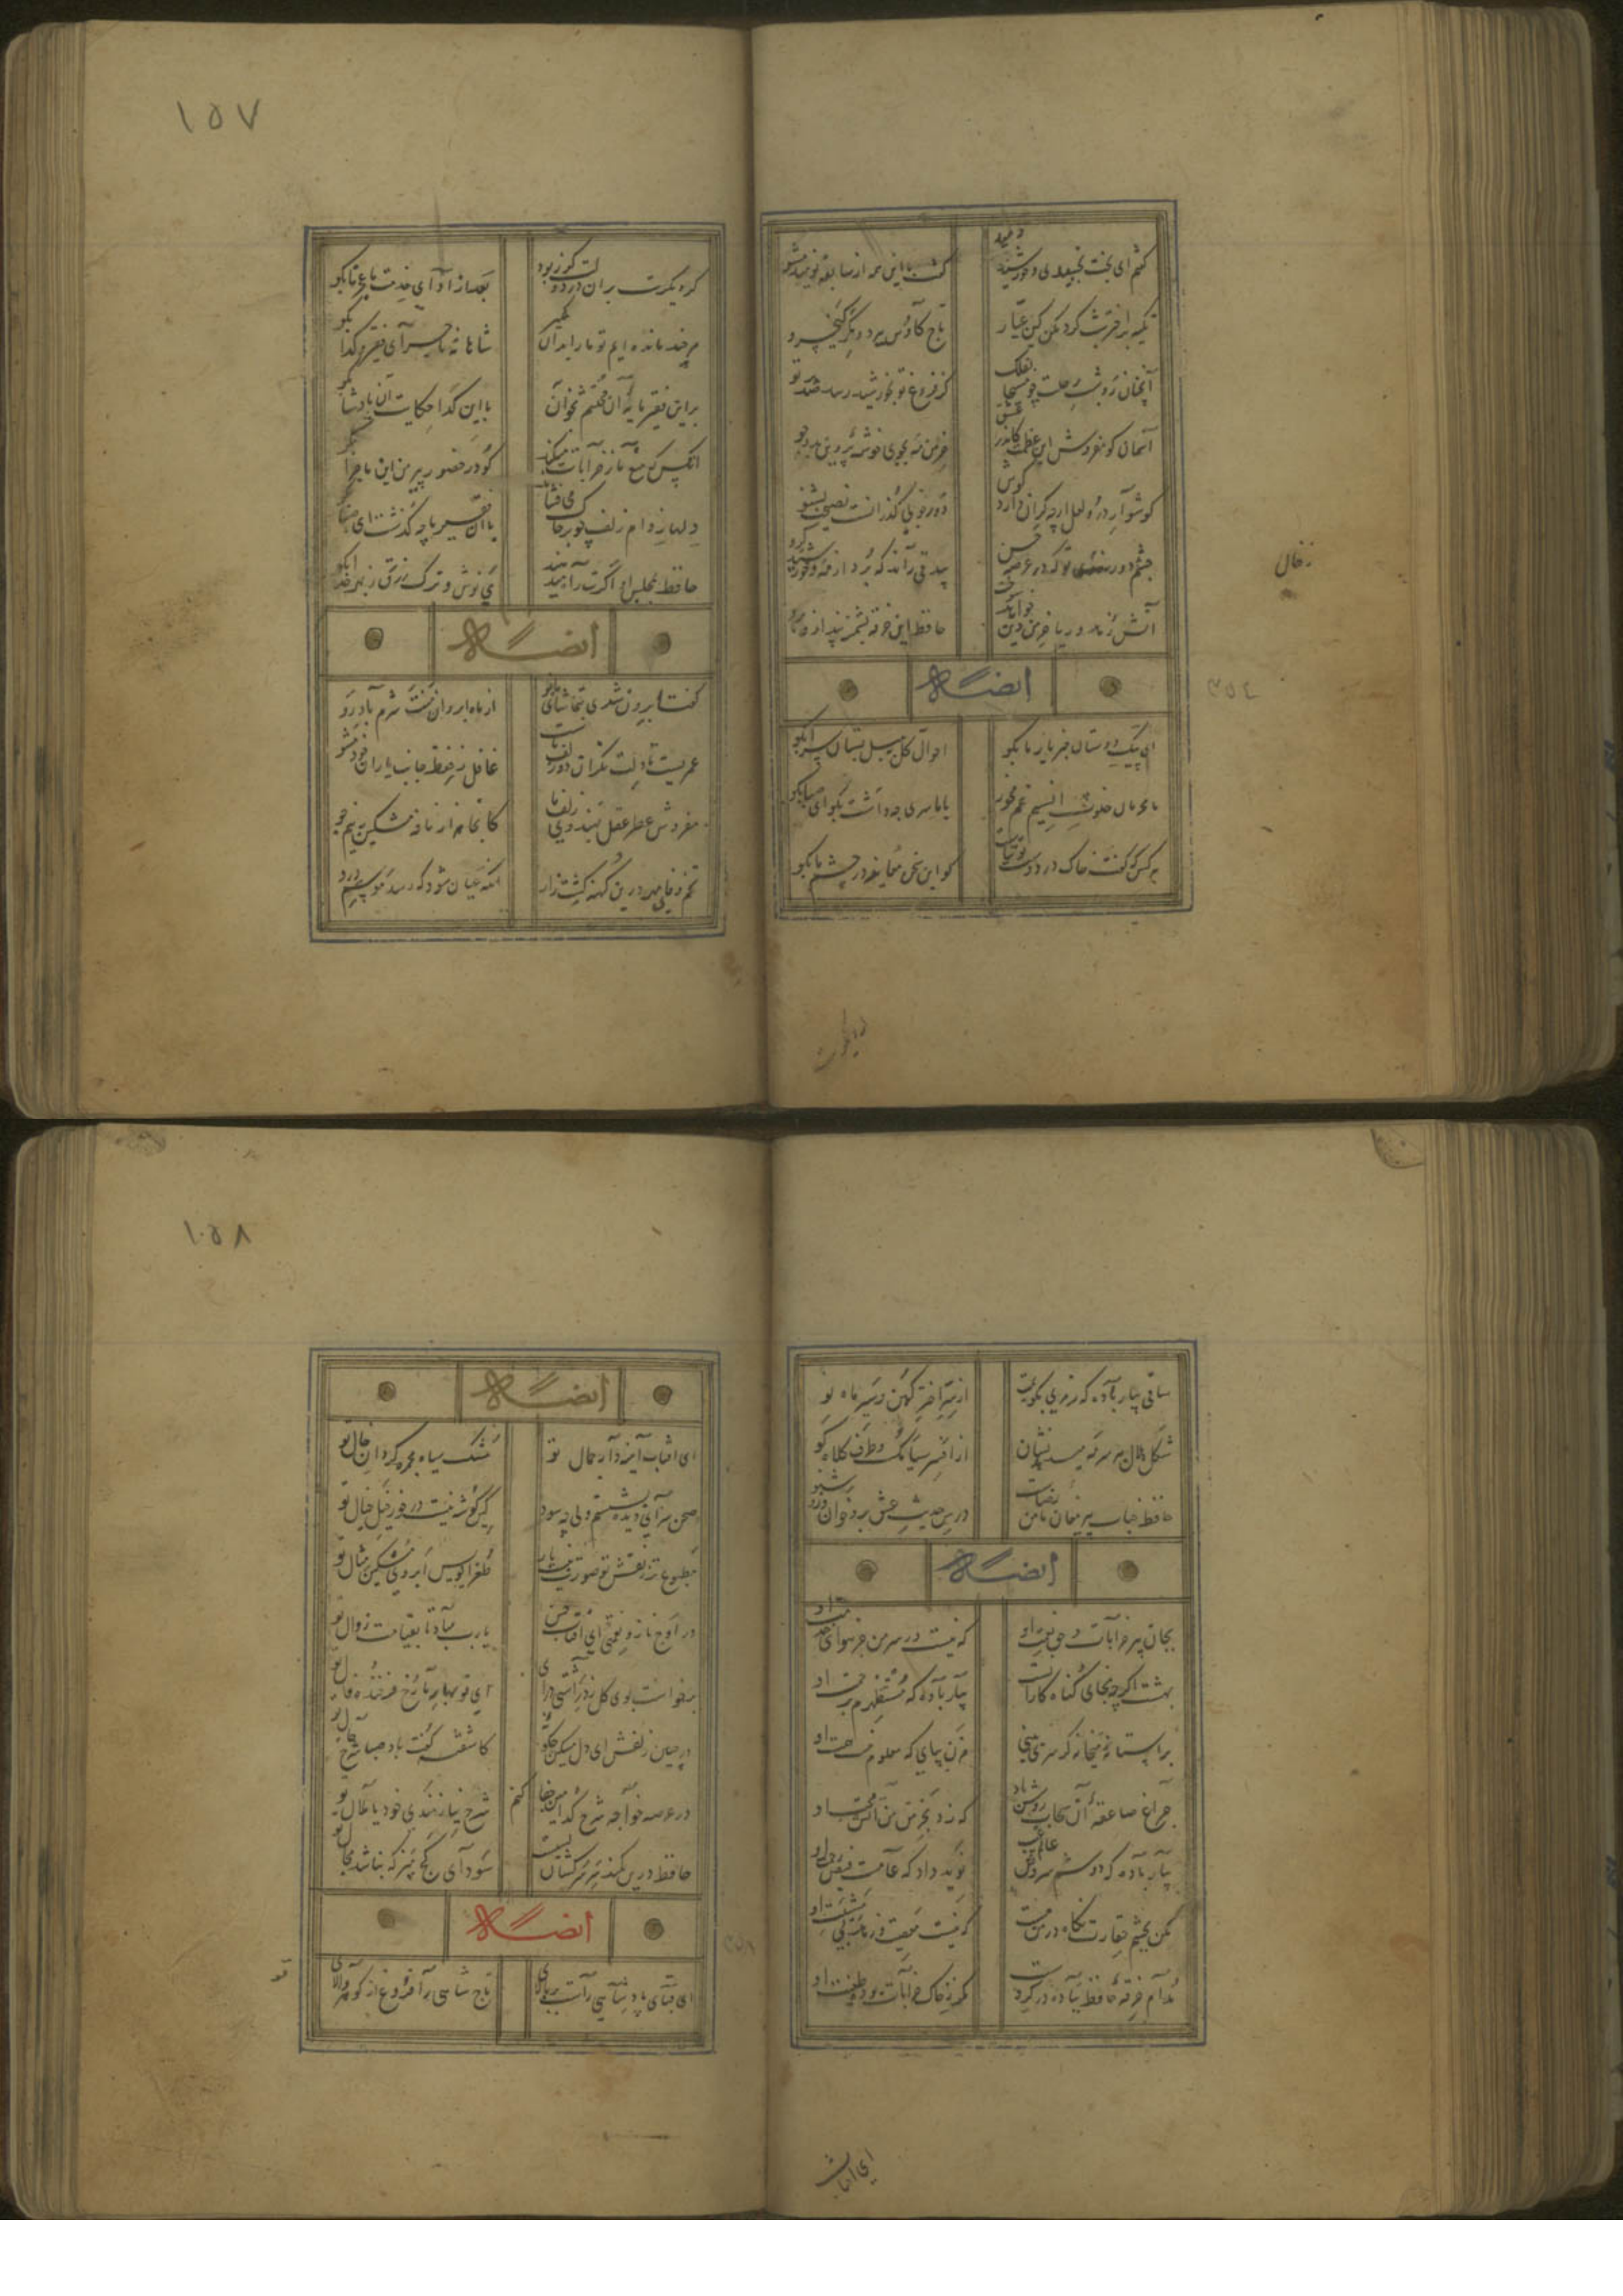 ١٥٧
کفتم ای بخت بخسبیدی و خورشید دمید کفت با این همه از سابقه نومید مشو
تکیه بر اختر شب کرد مکن کین عیار تاج کاوس ببرد و کمر کیخسرو
آنچنان رو شب رحلت چو مسیحا بفلک کز فروغ تو بخورشید رسد صد پرتو
آسمان کو مفروش این عظمت کاندر عشق خرمن مه بجوی خوشه پروین بدو جو
کوشوار در و لعل ارچه کران دارد کوش دور خوبی کذرانست نصیحت بشنو
چشم بد دور تو که در عرصه حسن بیدقی راند که برد از مه و خورشید کرو
ز خال
آتش زهد و ریا خرمن دین خواهد سوخت حافظ این خرقه پشمینه بینداز و برو
ایضا له
٣٥٤
ای پیک دوستان خبر یار ما بکو احوال کل ببلبل بستان سرا بکو
ما محرمان خلوت انسیم غم مخور با ما سری چه داشت بکو ای صبا بکو
هر کس که کفت خاک در دوست توتیاست کو این سخن معاینه در چشم ما بکو
کر دیکرت بران در دولت کذر بود بعد از ادای خدمت با عجز ما بکو
هر چند ما بده ایم تو ما را بدان مکیر شاهانه ماجرای فقیر و کدا بکو
براین فقیر نامه آن محتشم بخوان با این کدا حکایت آن پادشا بکو
آنکس که منع ما ز خرابات میکند کو در حضور پیر من این ماجرا بکو
دلها ز دام زلف چو بر خاک می فشاند با آن فقیر ما چه کذشت ای صبا بکو
حافظ بمجلس او اکرت راه میدهند می نوش و ترک زرق ز بهر خدا بکو
ایضا له
کفتا برون شدی بتماشای ماه نو از ماه ابروان منت شرم باد رو
عمریست تا دلت نکران دو زلف ماست غافل ز حفظ جانب یاران خود مشو
مفروش عطر عقل بهندوی زلف ما کانجا هزار نافه مشکین بنیم جو
تخم وفا و مهر درین کهنه کشت زار انکه عیان شود که رسد موسم درو
١٥٨
ساقی بیار باده که رمزی بکویمت از سر اختر کهن و سیر ماه نو
شکل هلال هر سر مه میدهد نشان از افسر سیامک و طرف کلاه کو
حافظ جناب پیر مغان مامن رضاست درس حدیث عشق برو خوان وزو شنو
ایضا له
بجان پیر خرابات و حق نعمت او که نیست در سر من جز هوای خدمت او
بهشت اکرچه نجای کناه کارانست بیار باده که مستظهرم برحمت او
بر آستانه میخانه کر سری بینی مزن بپای که معلوم نیست حالت او
چراغ صاعقه آن سحاب روشن باد که زد بخرمن من آتش محبت او
بیار باده که دوشم سروش عالم غیب نوید داد که عامست فیض رحمت او
مکن بچشم حقارت نکاه در من مست که نیست معصیت و زهد بی مشیت او
مدام خرقه حافظ بباده در کروست مکر ز خاک خرابات بود طینت او
ای افتاب
ایضا له
ای افتاب آینه دار جمال تو مشک سیاه مجمره کردان خال تو
صحن سرای دیده بشستم ولی چه سود کین کوشه نیست در خور خیل خیال تو
مطبوعتر ز نقش تو صورت نبست باز طغرا نویس ابروی مشکین مثال تو
در اوج ناز و نعمتی ای آفتاب حسن یارب مباد تا بقیامت زوال تو
برخواست بوی کل ز در آشتی درآی ای نو بهار ما رخ فرخنده فال تو
در چین زلفش ای دل مسکین چکونه کاشفته کفت باد صبا شرح حال تو
در عرصه خواجه شرح کدامین جفا کنم شرح نیازمندی خود یا ملال تو
حافظ درین کمند سر سرکشان بسیست سودای کج مپز که نباشد مجال تو
ایضا له
٣٥٨
ای قبای پادشاهی راست بر بالای تو تاج شاهی را فروغ از کوهر والای تو